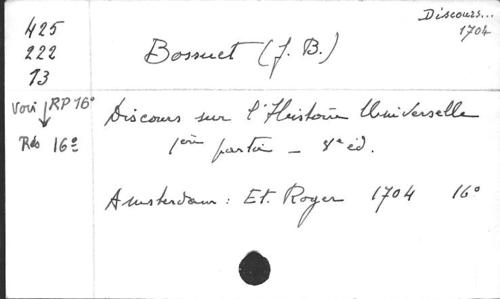 Discours...
1704
425
222
13
Bossuet (J. B.)
Voir RP 16°
Rés 16°
Discours sur l'Histoire Universelle
1ère partie - 8e éd.
Amsterdam : Et. Roger 1704 16°